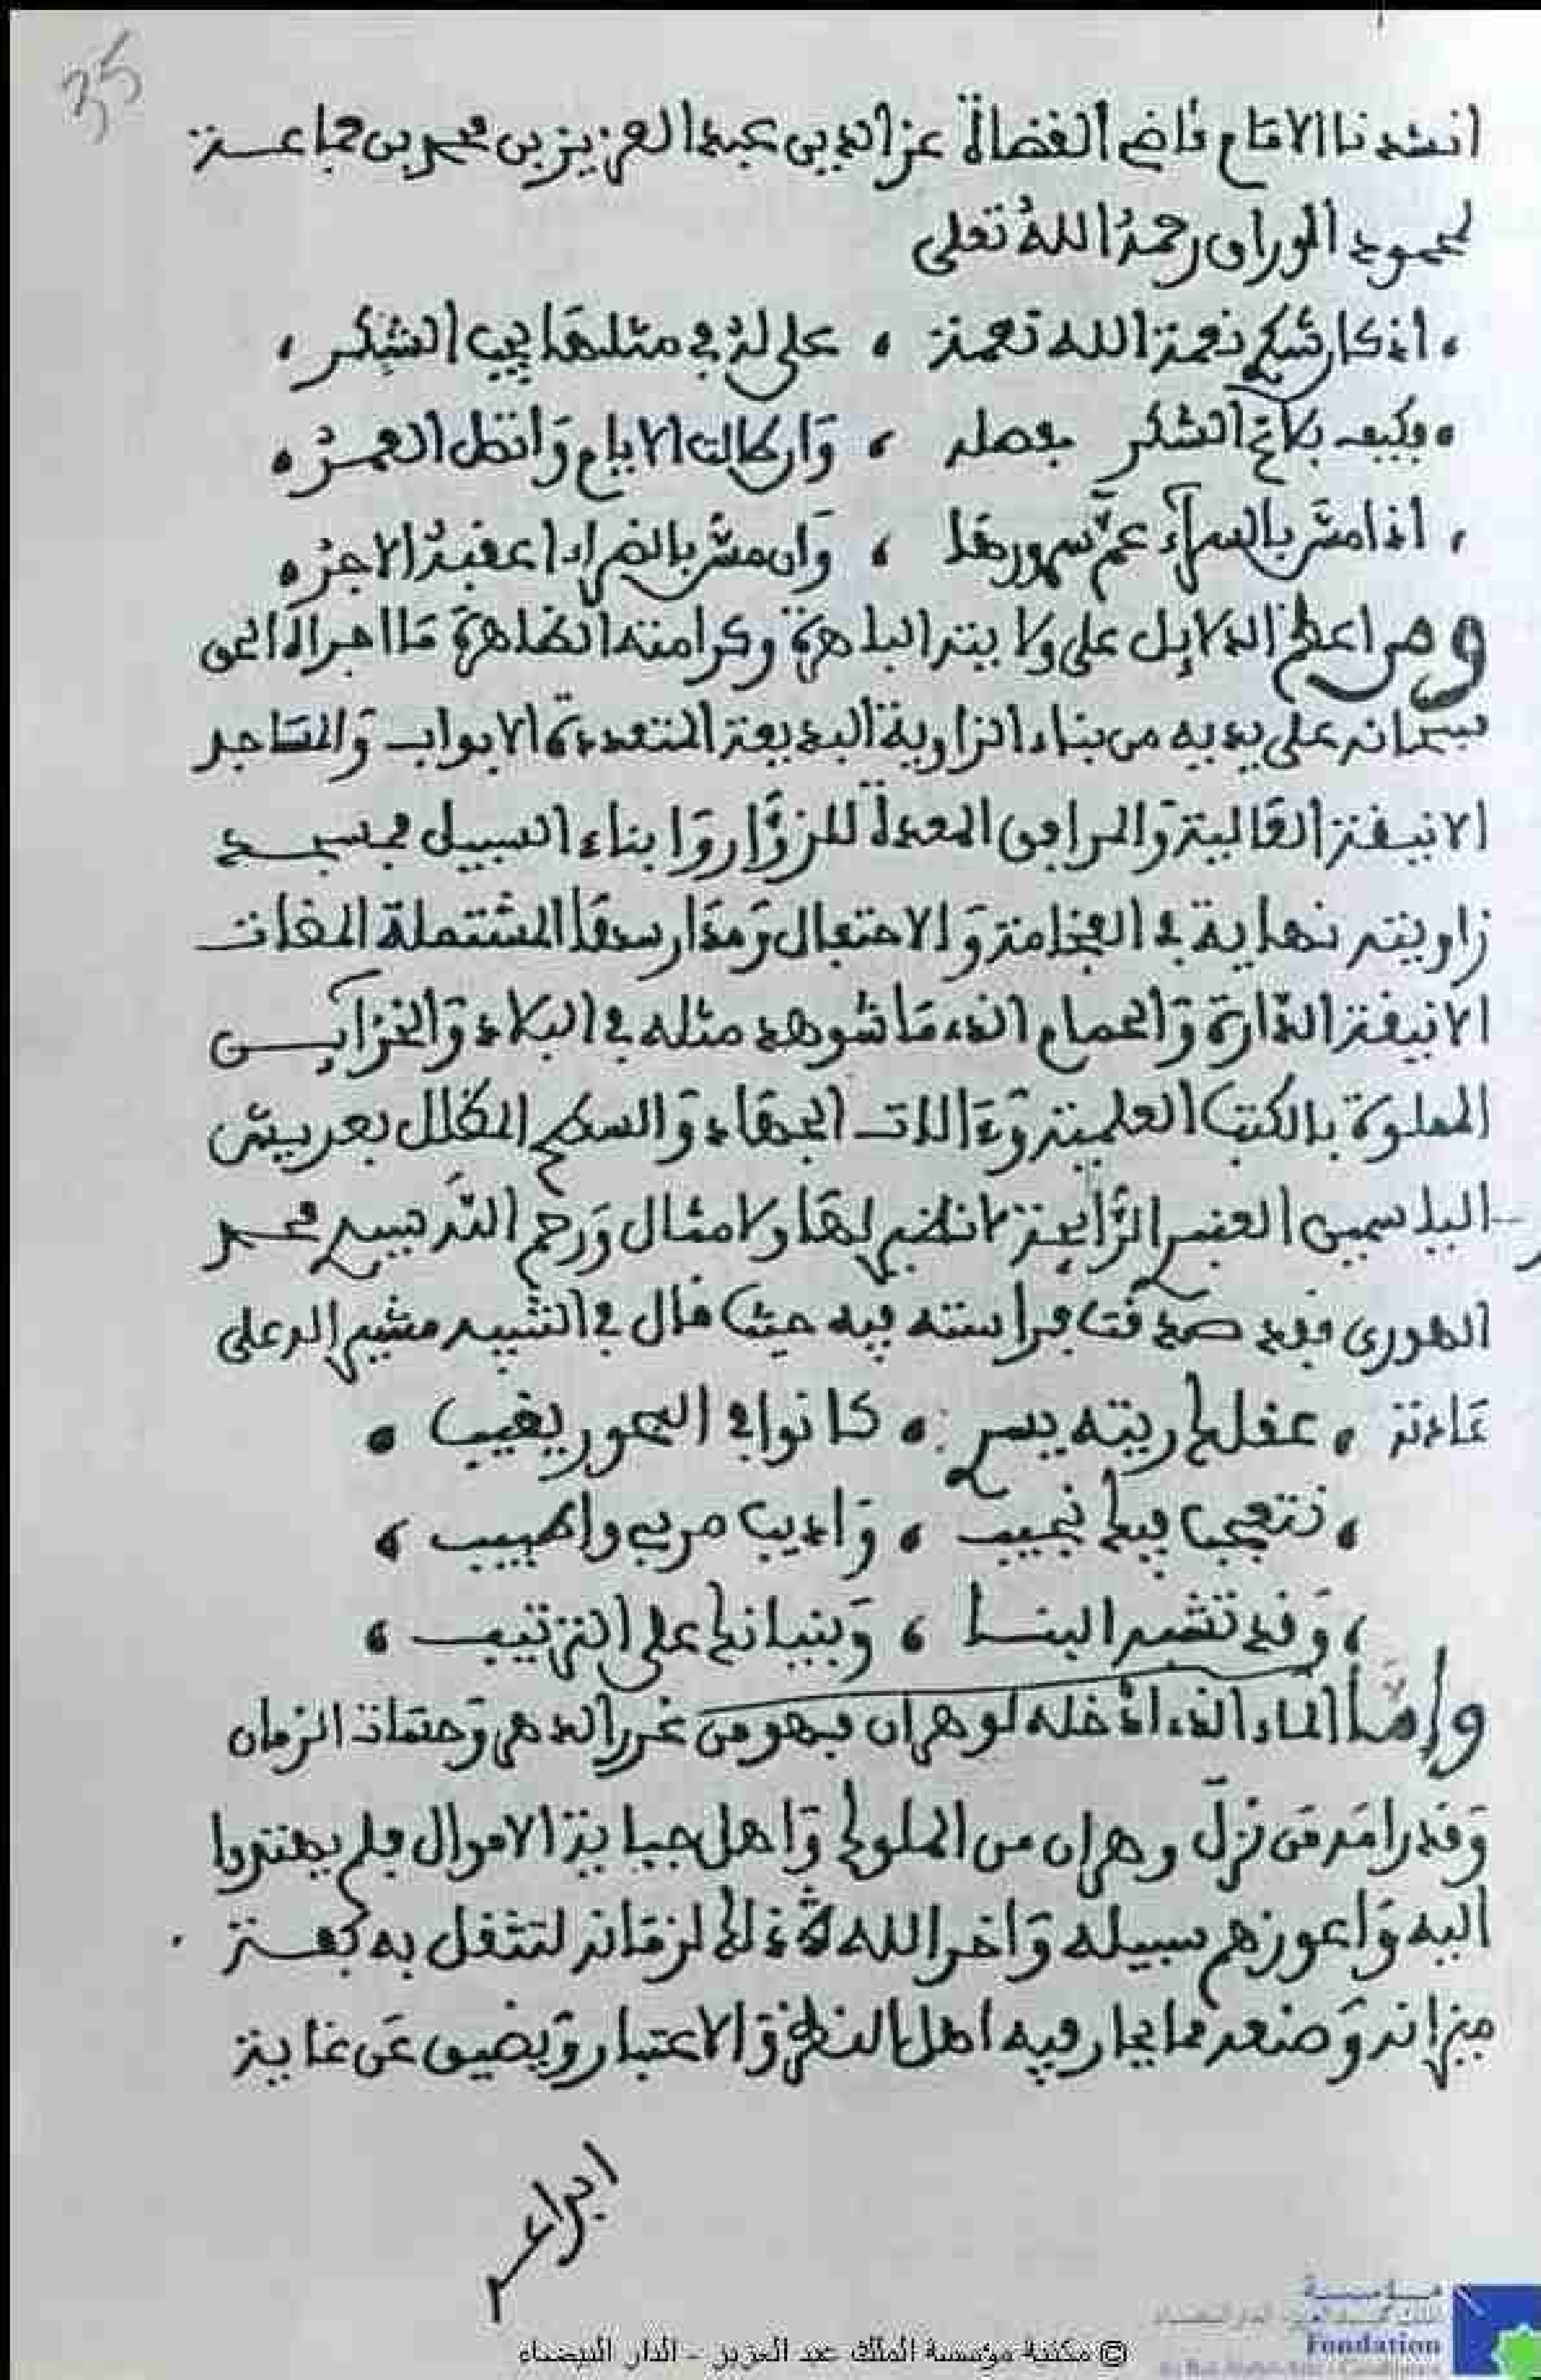 35
انشدنا الامام قاضي القضاة عز الدين عبد العزيز بن محمد بن جماعة
لمحمود الوراق رحمه الله تعلى
، اذا كان شكر نعمة الله نعمة ، علي له في مثلها يجب الشكر ،
، فكيف بلاغ الشكر بفضله ، وان طالت الايام واتصل العمر ،
، اذا مس بالسرآء عم سرورها ، وان مس بالضراء اعقبه الاجر ،
ومن اعظم الدلايل على ولايته الباهرة وكرامته الظاهرة ما اجراه الحق
سبحانه على يديه من بناء الزاوية البديعة المتعددة الابواب والمساجد
الانيقة العالية والمرافق المعدة للزوار وابناء السبيل فمسجد
زاويته نهاية في الفخامة والاحتفال ومدارسها المشتملة المقات
الانيقة الدارة والحمام الذي ما شوهد مثله في البلاد والخزآين
المملوة بالكتب العلمية وءالات الجهاد والسطح المظلل بعريش
الياسمين العنبر الرايحة لا نظير لها ولا مثال ورحم الله سيدي محمد
الهوري فقد صدقت فراسته فيه حيث قال في التنبيه مشيرا له على
عادته ، عقلك ريته يسر ، كانوا في البحور يغيب ،
، نتعجب فيك نجيب ، واديب مربي واطبيب ،
، وقد تشير البنا ، وبنيانك على الترتيب ،
واما الماء الذي ادخله لوهران فهو من غرر الدهر وحسنات الزمان
وقد رامه من نزل وهران من الملوك واهل جباية الاموال فلم يهتدوا
اليه واعوزهم سبيله واخر الله ذلك لزمانه لتثقل به كفة
ميزانه وصنعه مما يحار فيه اهل النظر والاعتبار ويضيق عن غاية
ابراعه
© مكتبة مؤسسة الملك عبد العزيز - الدار البيضاء
Fondation